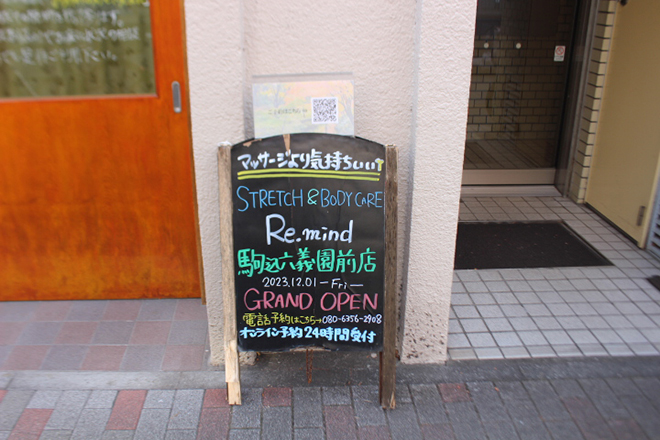 マッサージより気持ちいい↑
STRETCH & BODY CARE
Re.mind
駒込六義園前店
2023.12.01 -Fri-
GRAND OPEN
電話予約はこちら→080-6356-2908
オンライン予約24時間受付